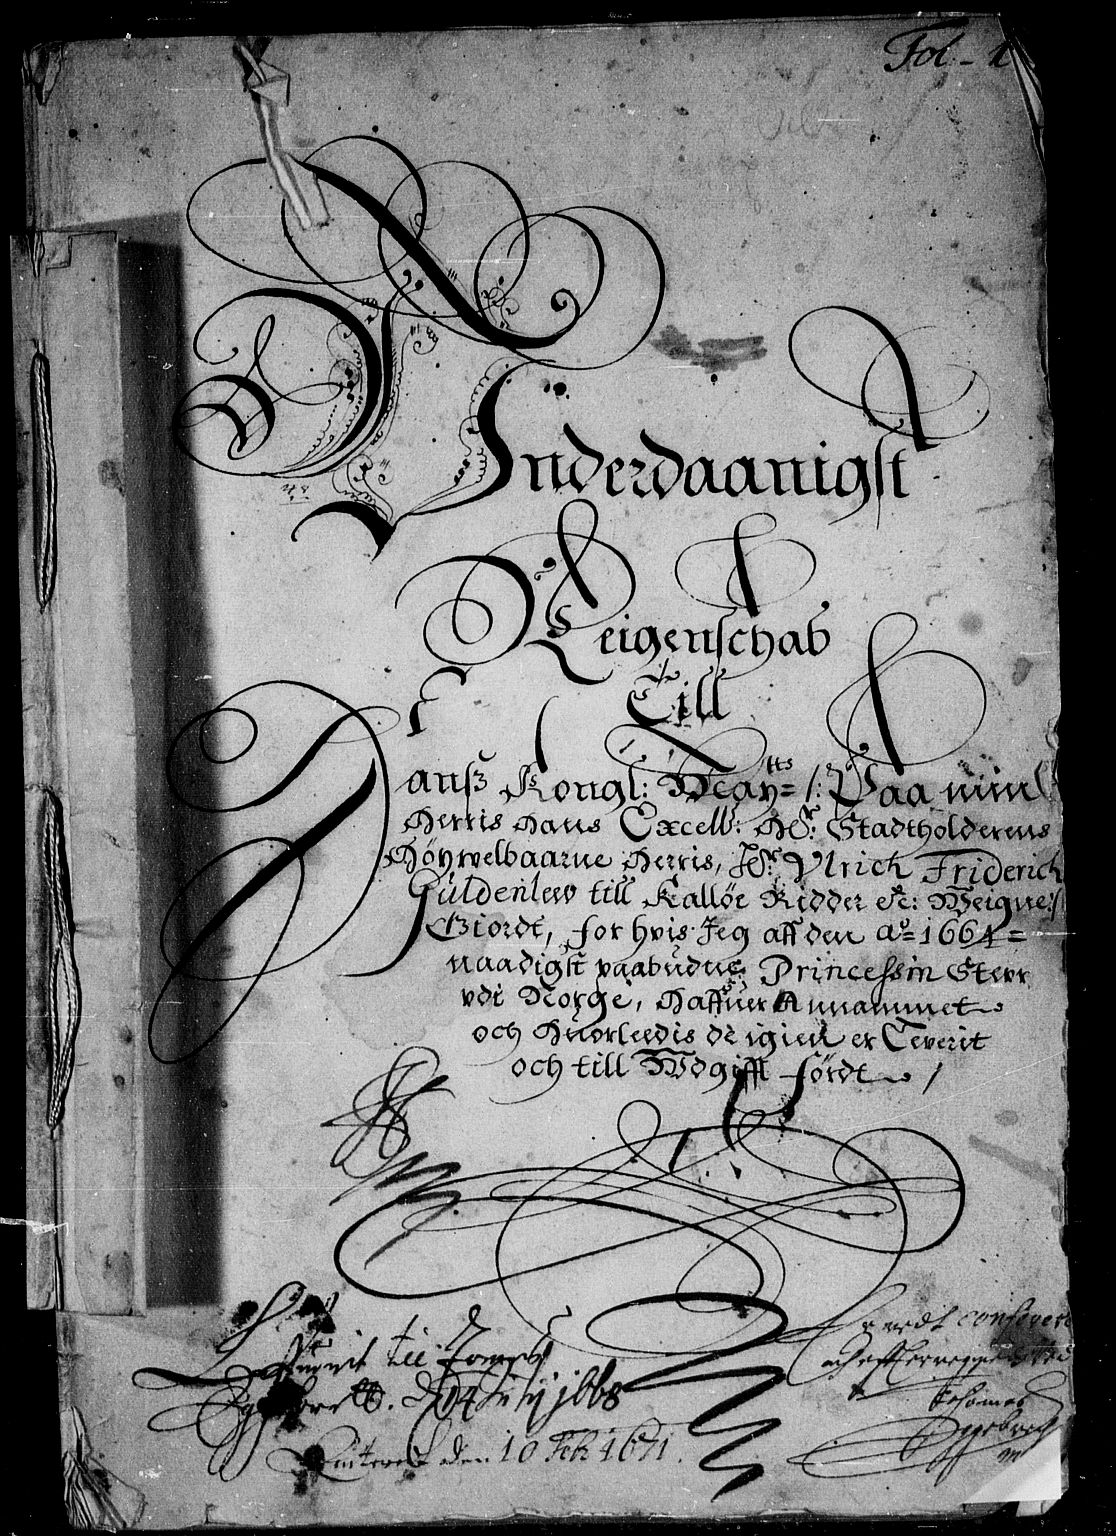 Fol. 1
Vnderdaanigst
Reigenschab
Till
Hans Kongl: Mayts /: Paa min
Herris Hans Excell: Hr: Stadtholderens
Höywelbaarne Herris, Hr: Vlrich Friderich
Güldenlew till Kallöe Ridder etc: Weigne:/
Giordt, for hvis Jeg aff den Ao 1664
naadigst paabudne Princessin Steur
vdi Norge, Haffuer Annammet
och Huorleedis de igien er Leverit
och till Wdgifft fördt /
Leverit till
den 14 July 1668
Qviteret den 10 Feb 1671.